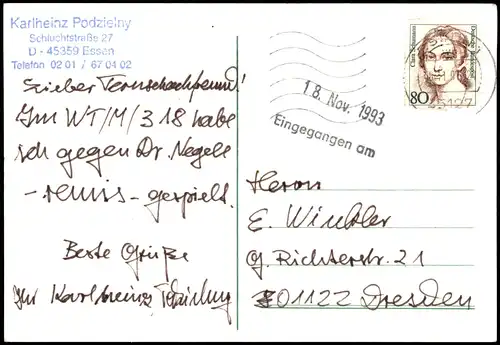 Karlheinz Podzielny
Schluchtstraße 27
D - 45359 Essen
Telefon 02 01 / 67 04 02
Lieber Fernschachfreund!
Im WT/M/318 habe
ich gegen Dr. Negele
- remis - gespielt.
Beste Grüße
Ihr Karlheinz Podzielny
Clara Schumann
Deutsche Bundespost
80
45127
18. Nov. 1993
Eingegangen am
Herrn
E. Winkler
G. Richterstr. 21
01122 Dresden